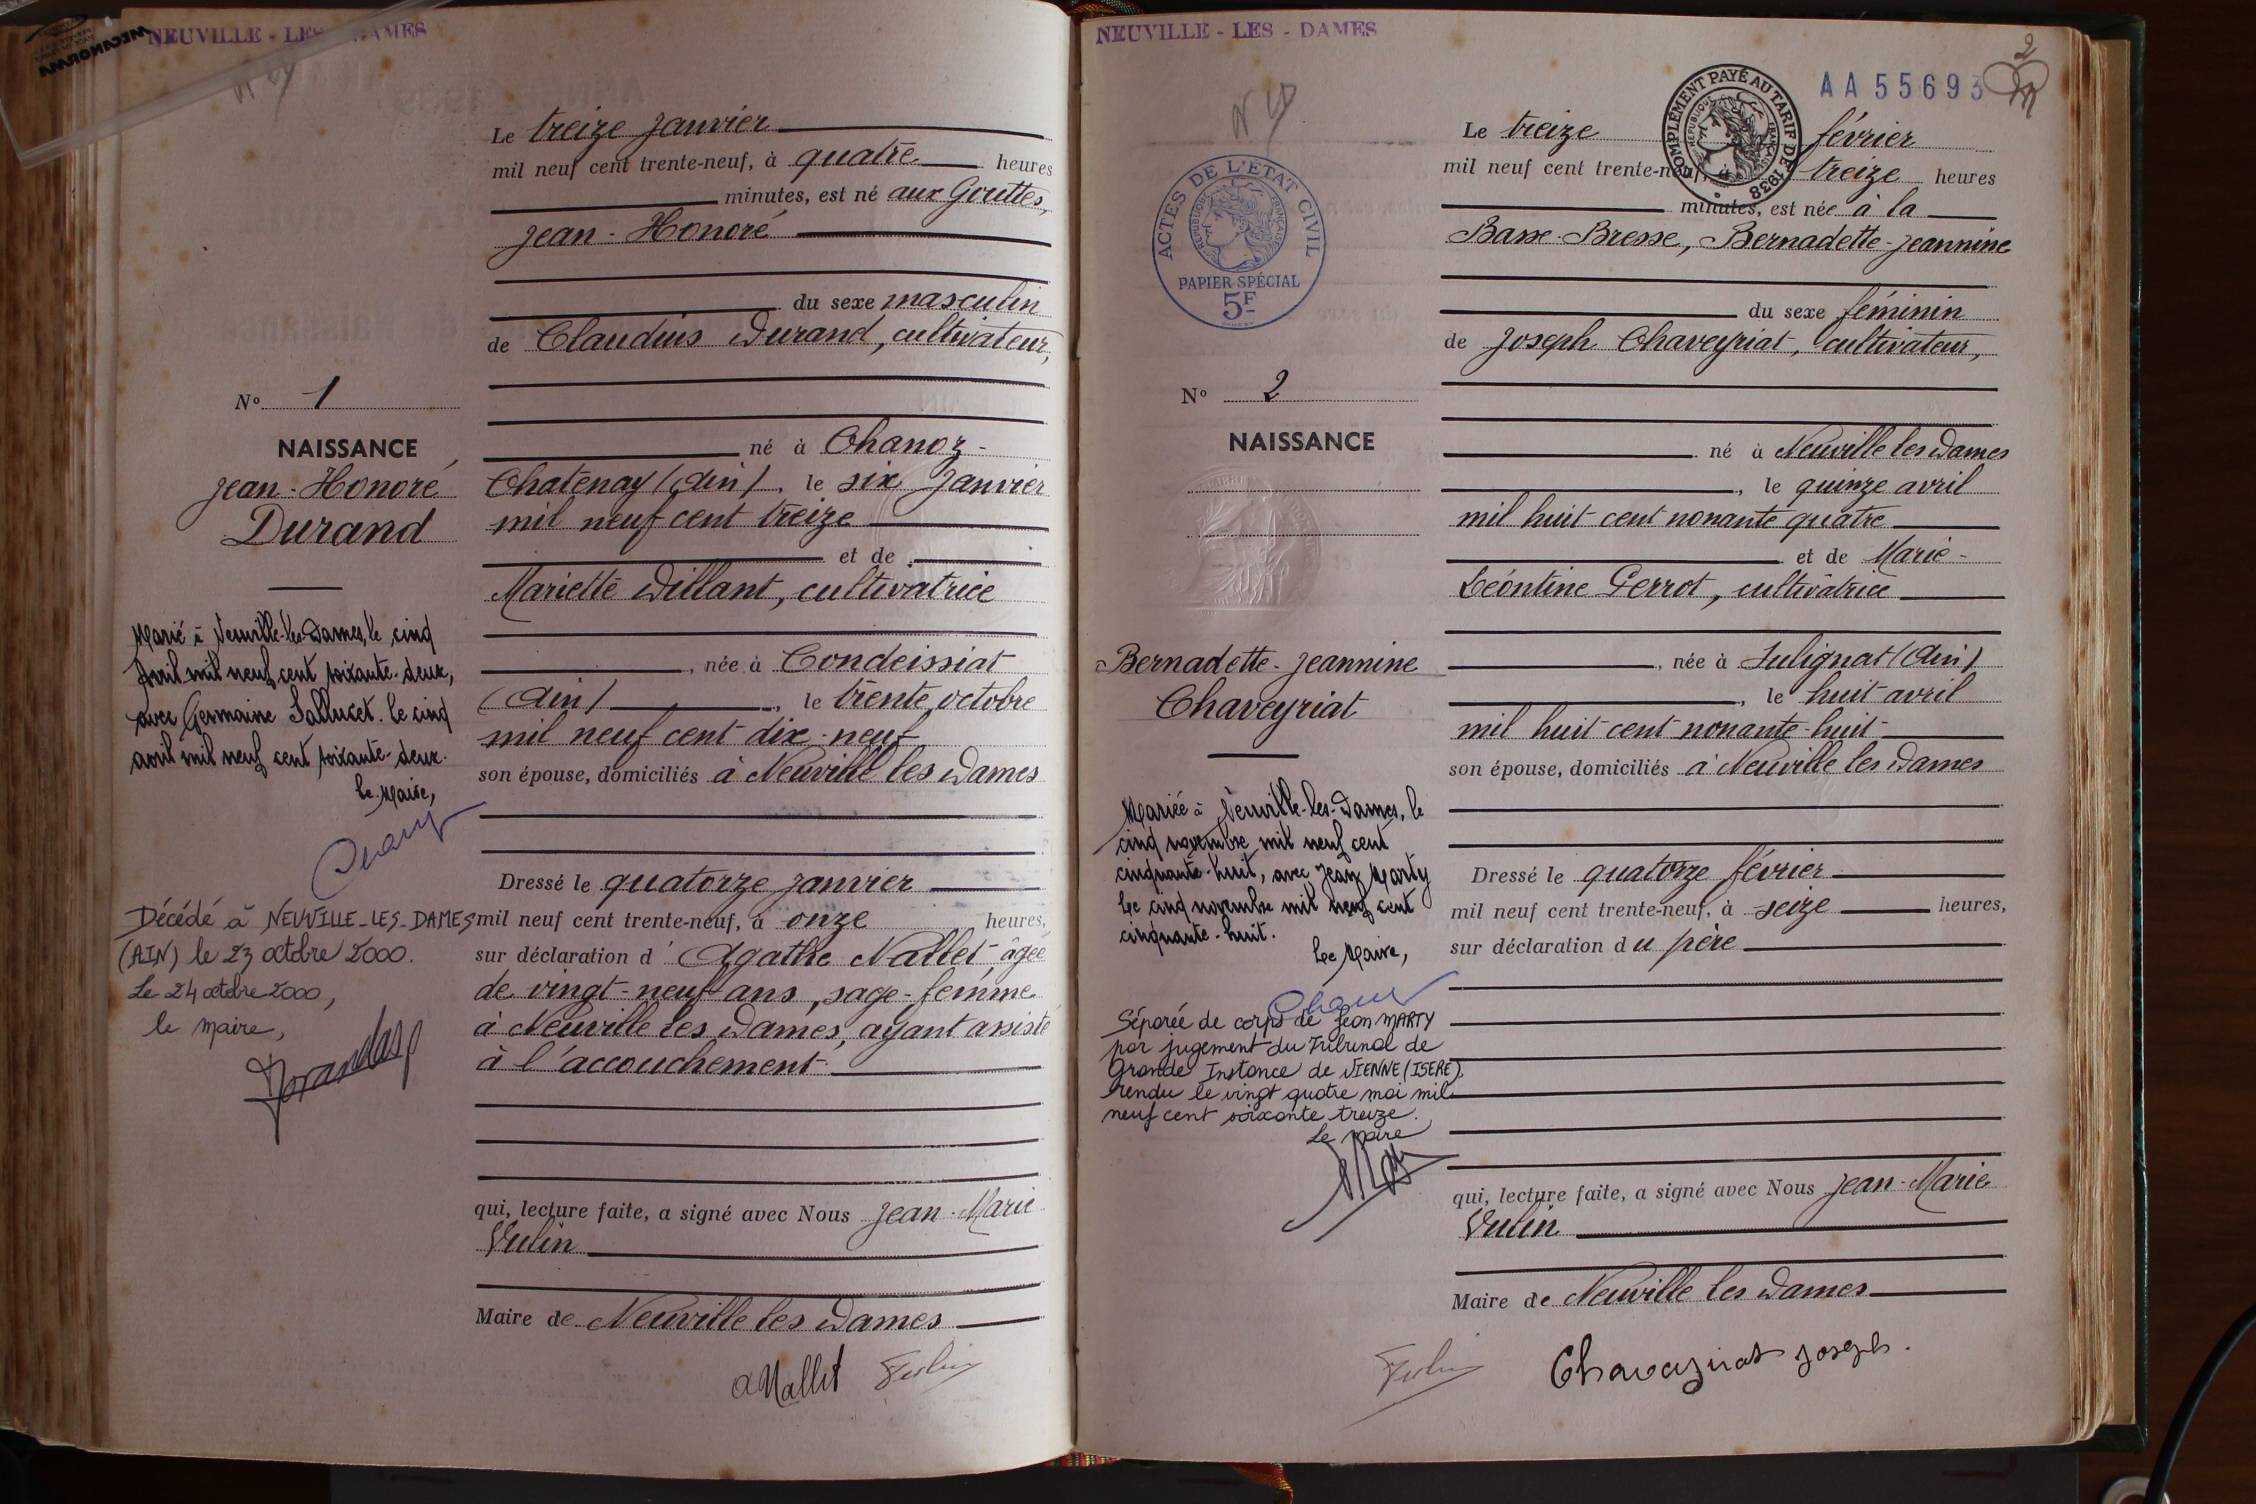 NEUVILLE - LES DAMES
Le treize janvier
mil neuf cent trente-neuf, à quatre heures
minutes, est né aux Gouttes,
Jean-Honoré
du sexe masculin
de Claudius Durand, cultivateur,
né à Chanoz-
Chatenay (Ain), le six Janvier
mil neuf cent treize
et de
Mariette Dillant, cultivatrice
, née à Condeissiat
(Ain), le trente octobre
mil neuf cent dix-neuf
son épouse, domiciliés à Neuville les Dames
Dressé le quatorze janvier
mil neuf cent trente-neuf, à onze heures,
sur déclaration d'Agathe Nallet, âgée
de vingt-neuf ans, sage-femme
à Neuville les Dames, ayant assisté
à l'accouchement
qui, lecture faite, a signé avec Nous Jean-Marie
Vulin
Maire de Neuville les Dames
A Nallet Vulin
No 1
NAISSANCE
Jean-Honoré
Durand
Marié à Neuville-les-Dames, le cinq
Avril mil neuf cent soixante-deux,
avec Germaine. le cinq
avril mil neuf cent soixante-deux.
le Maire,
Décédé à NEUVILLE-LES-DAMES
(AIN) le 23 octobre 2000.
Le 24 octobre 2000,
le maire,
NEUVILLE - LES - DAMES
2
AA55693
COMPLÉMENT PAYÉ AU TARIF DE 1938
RÉPUBLIQUE FRANÇAISE
ACTES DE L'ÉTAT CIVIL
RÉPUBLIQUE FRANÇAISE
PAPIER SPÉCIAL
5F
Le treize février
mil neuf cent trente-neuf, à treize heures
minutes, est née à la
Basse-Bresse, Bernadette-Jeannine
du sexe féminin
de Joseph Chaveyriat, cultivateur,
né à Neuville les Dames
, le quinze avril
mil huit cent nonante quatre
et de Marie-
Léontine Perrot, cultivatrice
, née à Sulignat (Ain)
, le huit avril
mil huit cent nonante-huit
son épouse, domiciliés à Neuville les Dames
Dressé le quatorze février
mil neuf cent trente-neuf, à seize heures,
sur déclaration du père
qui, lecture faite, a signé avec Nous Jean-Marie
Vulin
Maire de Neuville les Dames
Vulin Chaveyriat Joseph.
No 2
NAISSANCE
Bernadette-Jeannine
Chaveyriat
Mariée à Neuville-les-Dames, le
cinq novembre mil neuf cent
cinquante-huit, avec Jean Marty
Le cinq novembre mil neuf cent
cinquante-huit.
Le Maire,
Séparée de corps de Jean MARTY
par jugement du Tribunal de
Grande Instance de VIENNE (ISERE)
rendu le vingt quatre mai mil
neuf cent soixante treize.
Le Maire